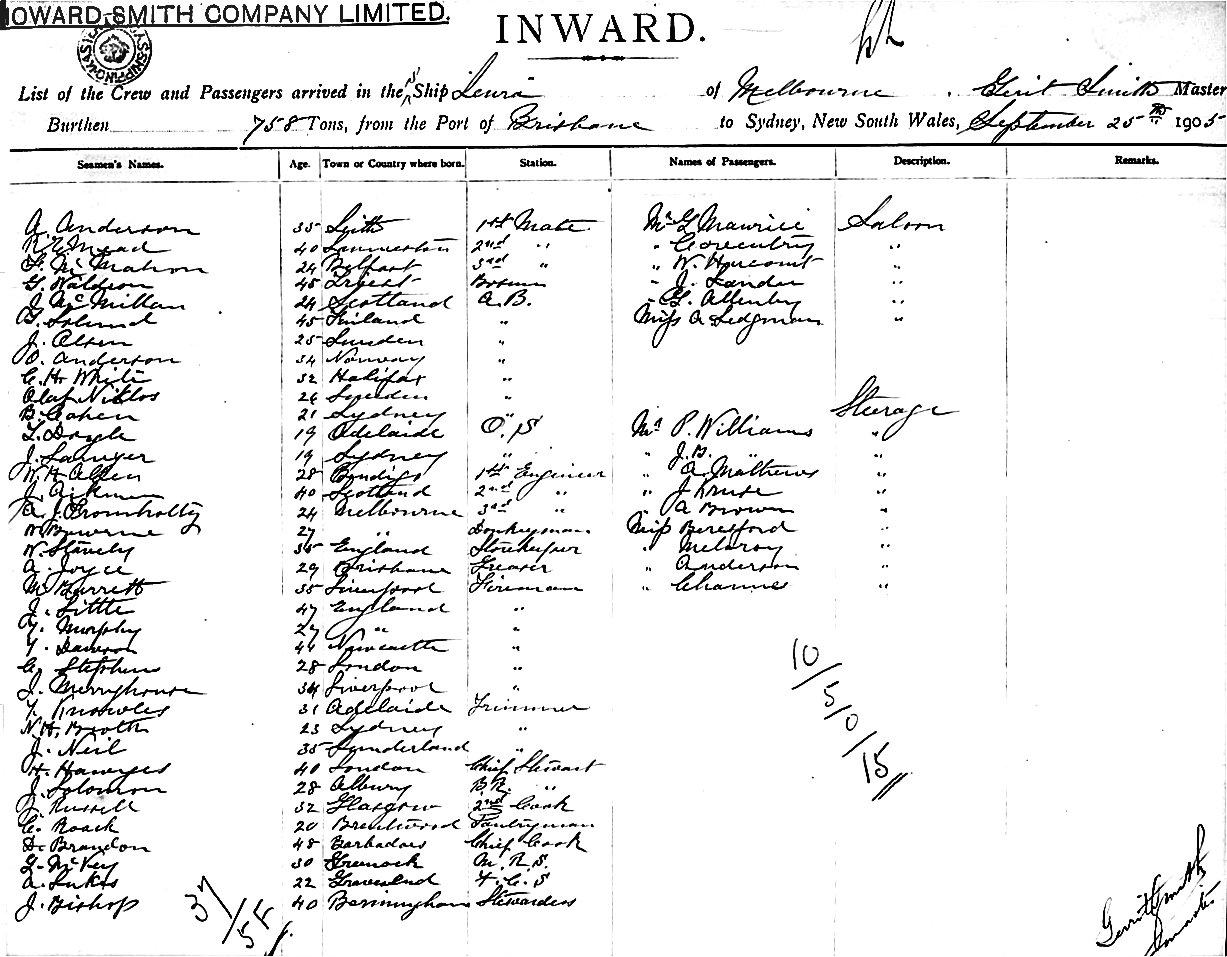 HOWARD SMITH COMPANY LIMITED.
INWARD.
List of the Crew and Passengers arrived in the SS Ship Leura of Melbourne, Gerit Smith Master
Burthen 758 Tons, from the Port of Brisbane to Sydney, New South Wales, September 25th 1905
Seamen's Names. Age. Town or Country where born. Station. Names of Passengers. Description. Remarks.
A. Anderson 35 Leith 1st Mate Mr G Maurice Saloon
R. E. Mead 40 Launceston 2nd " " Coventry "
F. McMahon 24 Belfast 3rd " " W. Harcourt "
G. Waldron 45 Bosun " J. Lander "
J McMillan 24 Scotland A.B. " G. Allenby "
45 Finland " Miss A Sedgman "
J. Olsen 25 Sweden "
O. Anderson 34 Norway "
C. H. White 32 Halifax "
Olaf Niklos 26 Sweden "
B. Cohen 21 Sydney " Steerage
L. Doyle 19 Adelaide O.S Mr P. Williams "
J. 19 Sydney " " J.B. " "
W. H. Allen 28 Bendigo 1st Engineer " A. Mathews "
J. Aikman 40 Scotland 2nd " " J Kruse "
A. J. Fromholtz 24 Melbourne 3rd " " A Brown "
27 " Donkeyman Miss Beresford "
W. Stavely 35 England Storekeeper " Mclaroy "
A. Joyce 29 Brisbane Greaser " Anderson "
M. Barrett 35 Liverpool Fireman " Channes "
J. Little 47 England "
T. Murphy 27 " "
T. Dawson 44 Newcastle "
C. Stephens 28 London "
J. Merryhouse 34 Liverpool "
T. Knowles 31 Adelaide Trimmer
N. H. Booth 23 Sydney "
J. Neil 35 Sunderland "
H. Hawyes 40 London Chief Stewart
J. Solomon 28 Albury B.R. "
J. Russell 32 Glasgow 2nd Cook
C. Roach 20 Brentwood Pantryman
D. Brandon 48 Barbadoes Chief Cook
L. McKey 30 Greenock M.R.S.
A. Lukis 22 Gravesend F.C.S
J. Bishop 40 Berminghham Stewardess
10/5/0/15
37/5F
Gerrit Smith
Master